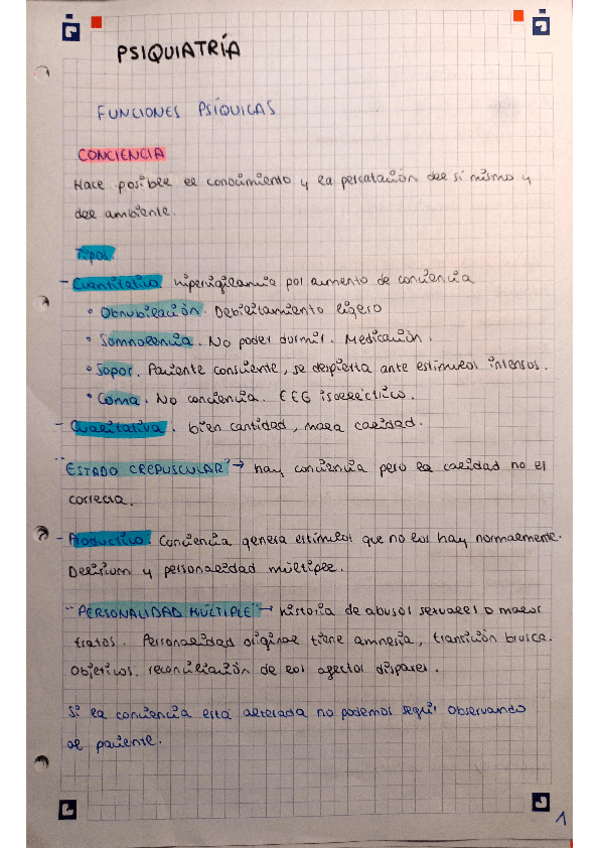 PSIQUIATRÍA
FUNCIONES PSÍQUICAS
CONCIENCIA
Hace posible el conocimiento y la percatación del sí mismo y
del ambiente.
Tipos.
- Cuantitativo. hipervigilancia por aumento de conciencia
• Obnubilación. Debilitamiento ligero
• Somnolencia. No poder dormir. Medicación.
• Sopor. Paciente consciente, se despierta ante estímulos intensos.
• Coma. No conciencia. EEG isoeléctrico.
- Cualitativa. bien cantidad, mala calidad.
"ESTADO CREPUSCULAR" → hay conciencia pero la calidad no es
correcta.
- Productivo. Conciencia genera estímulos que no los hay normalmente.
Delirium y personalidad múltiple.
"PERSONALIDAD MÚLTIPLE" → historia de abusos sexuales o malos
tratos. Personalidad original tiene amnesia, transición brusca.
Objetivos. reconciliación de los afectos dispares.
Si la conciencia está alterada no podemos seguir observando
al paciente.
1